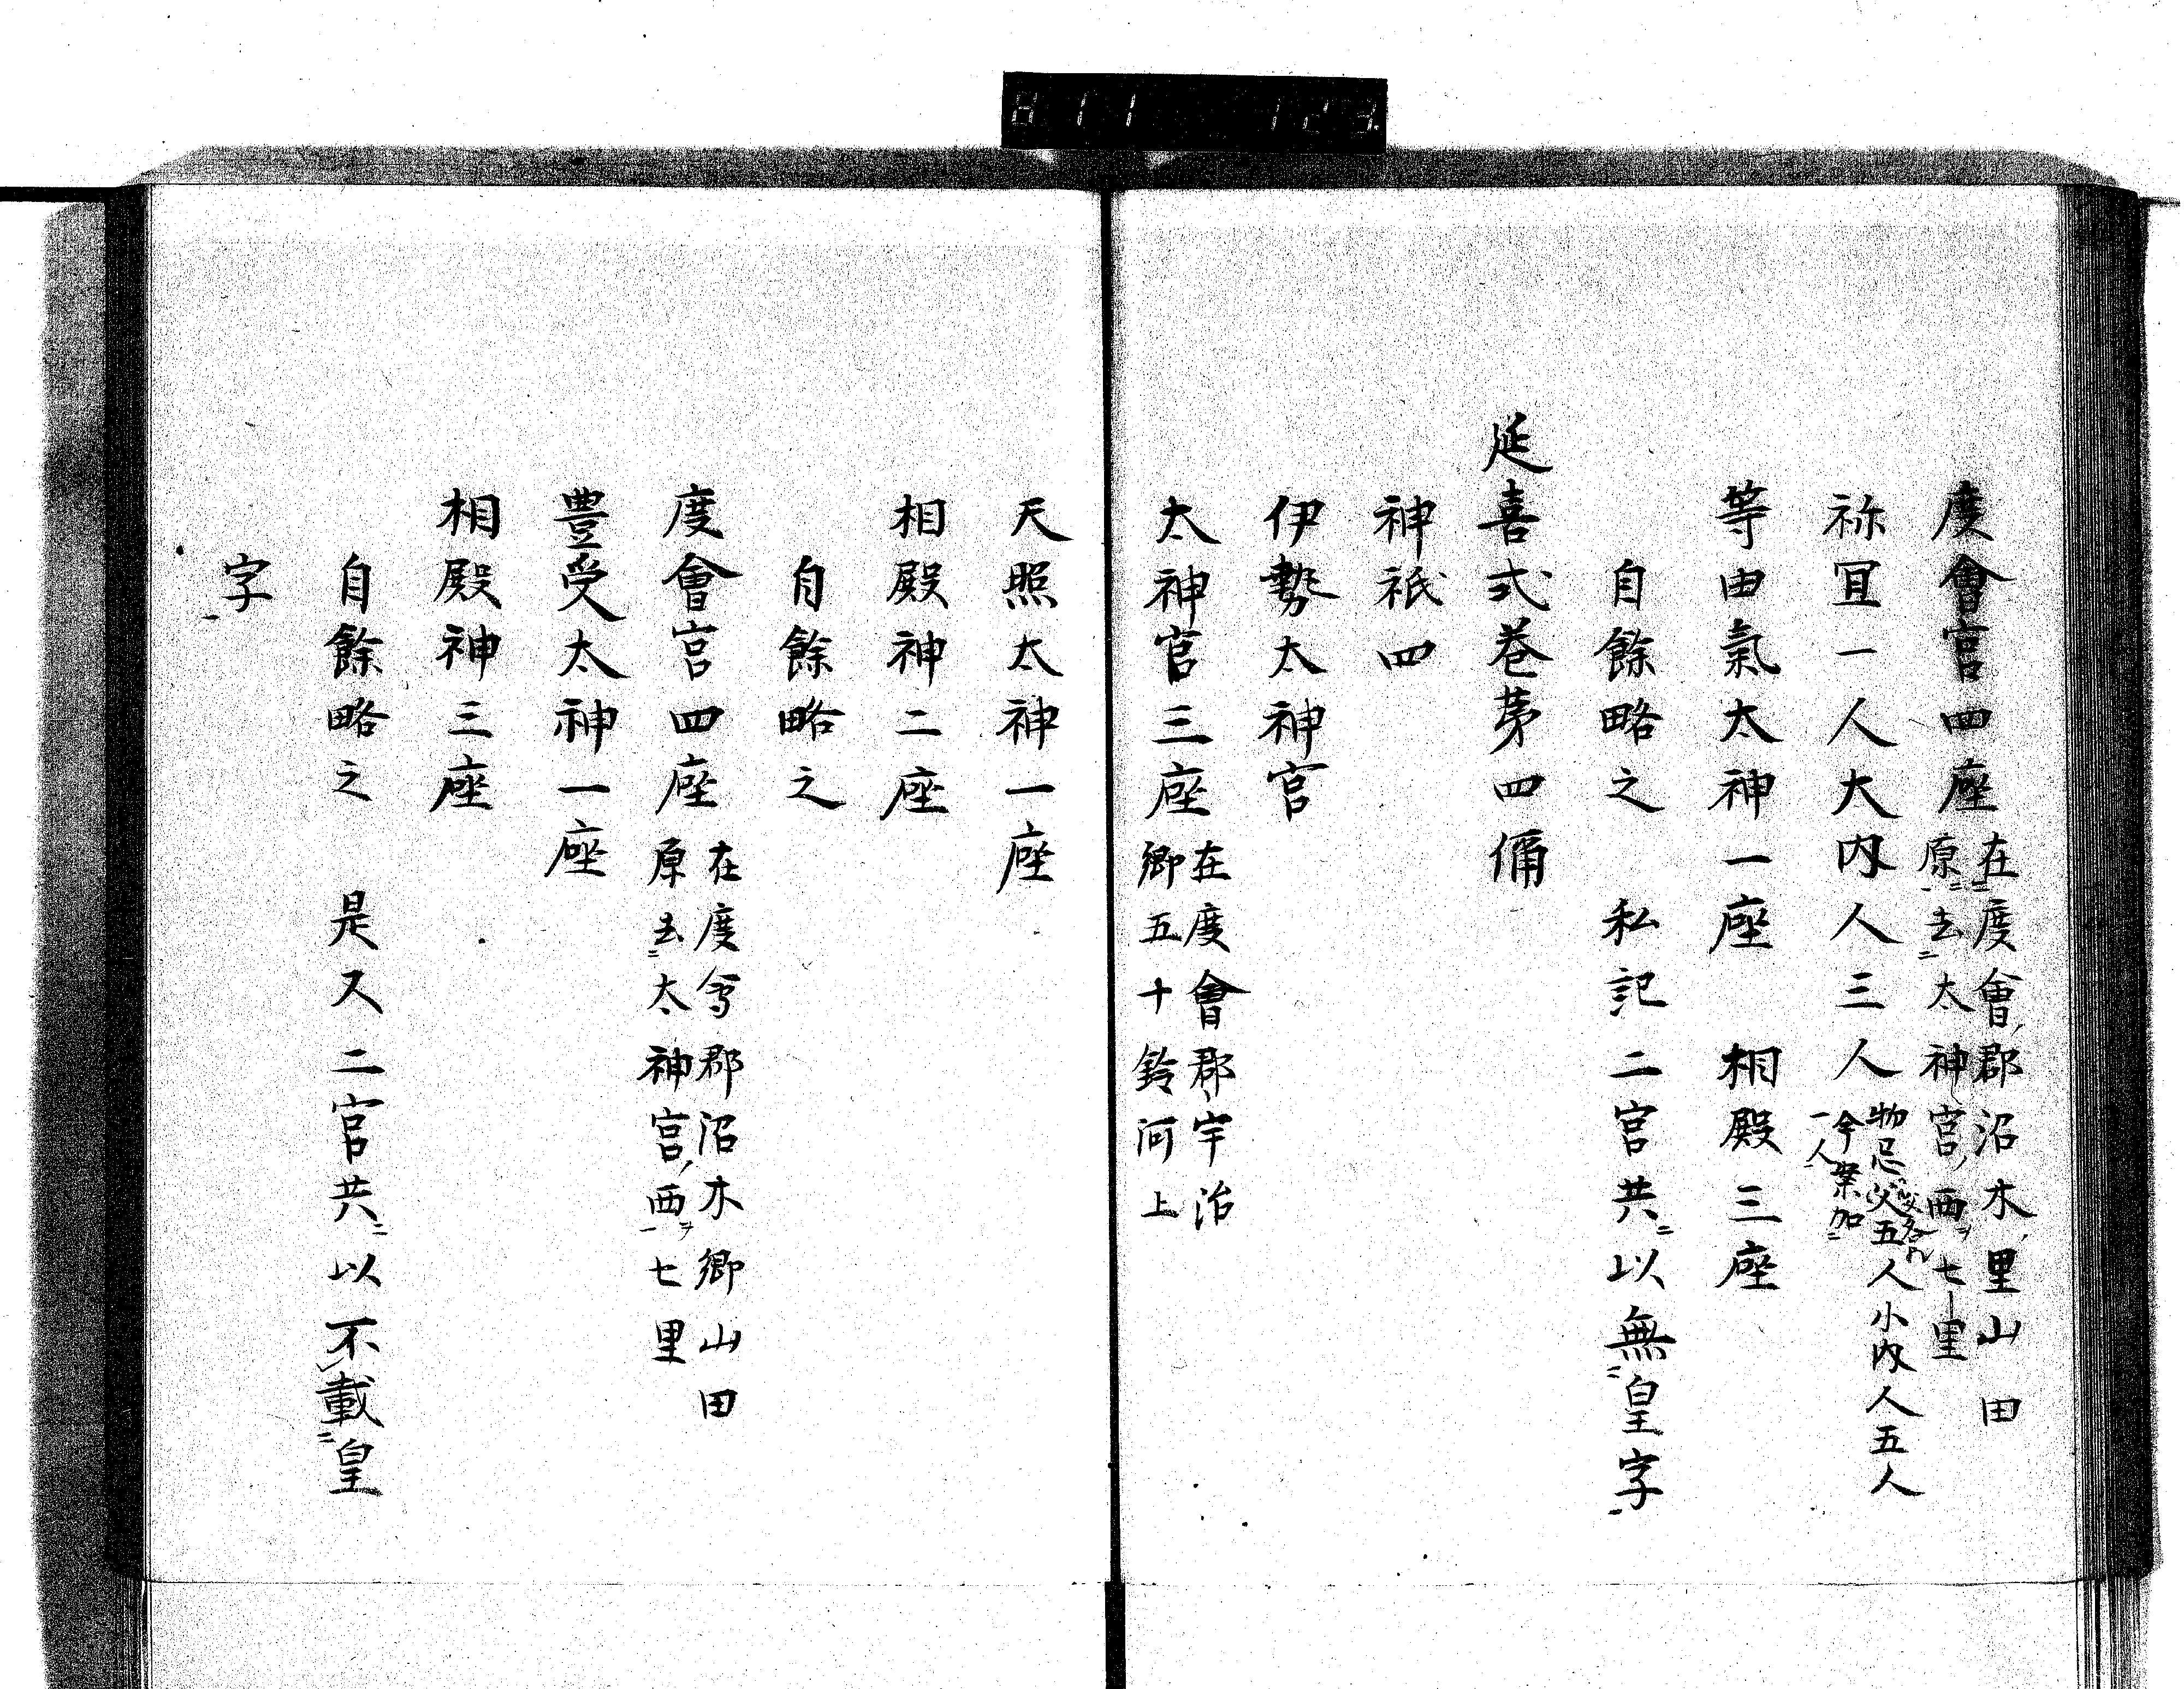 度會宮四座
在度會郡沼木里山田
原去太神宮西七里
祢冝一人大内人三人
物忌父五人小内人五人
今案加
一人
等由氣太神一座 相殿三座
自餘略之 私記二宮共以無皇字
延喜式巻苐四
神祇四
伊勢太神宮
太神宮三座
在度會郡宇治
郷五十鈴河上
天照太神一座
相殿神二座
自餘略之
度會宮四座
在度会郡沼木郷山田
原去太神宮西七里
豊受太神一座
相殿神三座
自餘略之 是又二宮共以不載皇
字